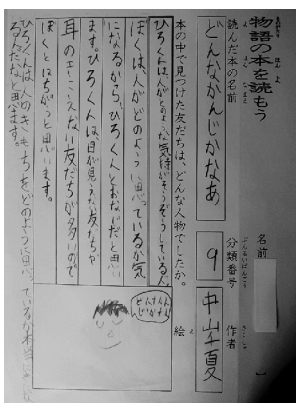 物語の本を読もう
ものがたり ほん よ
名前
読んだ本の名前
よ ほん なまえ
どんなかんじかなあ
分類番号
ぶんるいばんごう
9
作者
さくしゃ
中山千夏
本の中で見つけた友だちは、どんな人物でしたか。
ひろくんは、人がどのような気持ちかそうぞうしている人
ぼくは、人がどのように思っているか気
になるから、ひろくんとおなじだと思い
ます。ひろくんは、目が見えない友だちや
耳のきこえない友だちが多いので
ぼくとはちがうと思います。
ひろくんは人のきもちをどのように思っているか本当に
るんだなと思います。
絵
え
どんなかんじかなあ